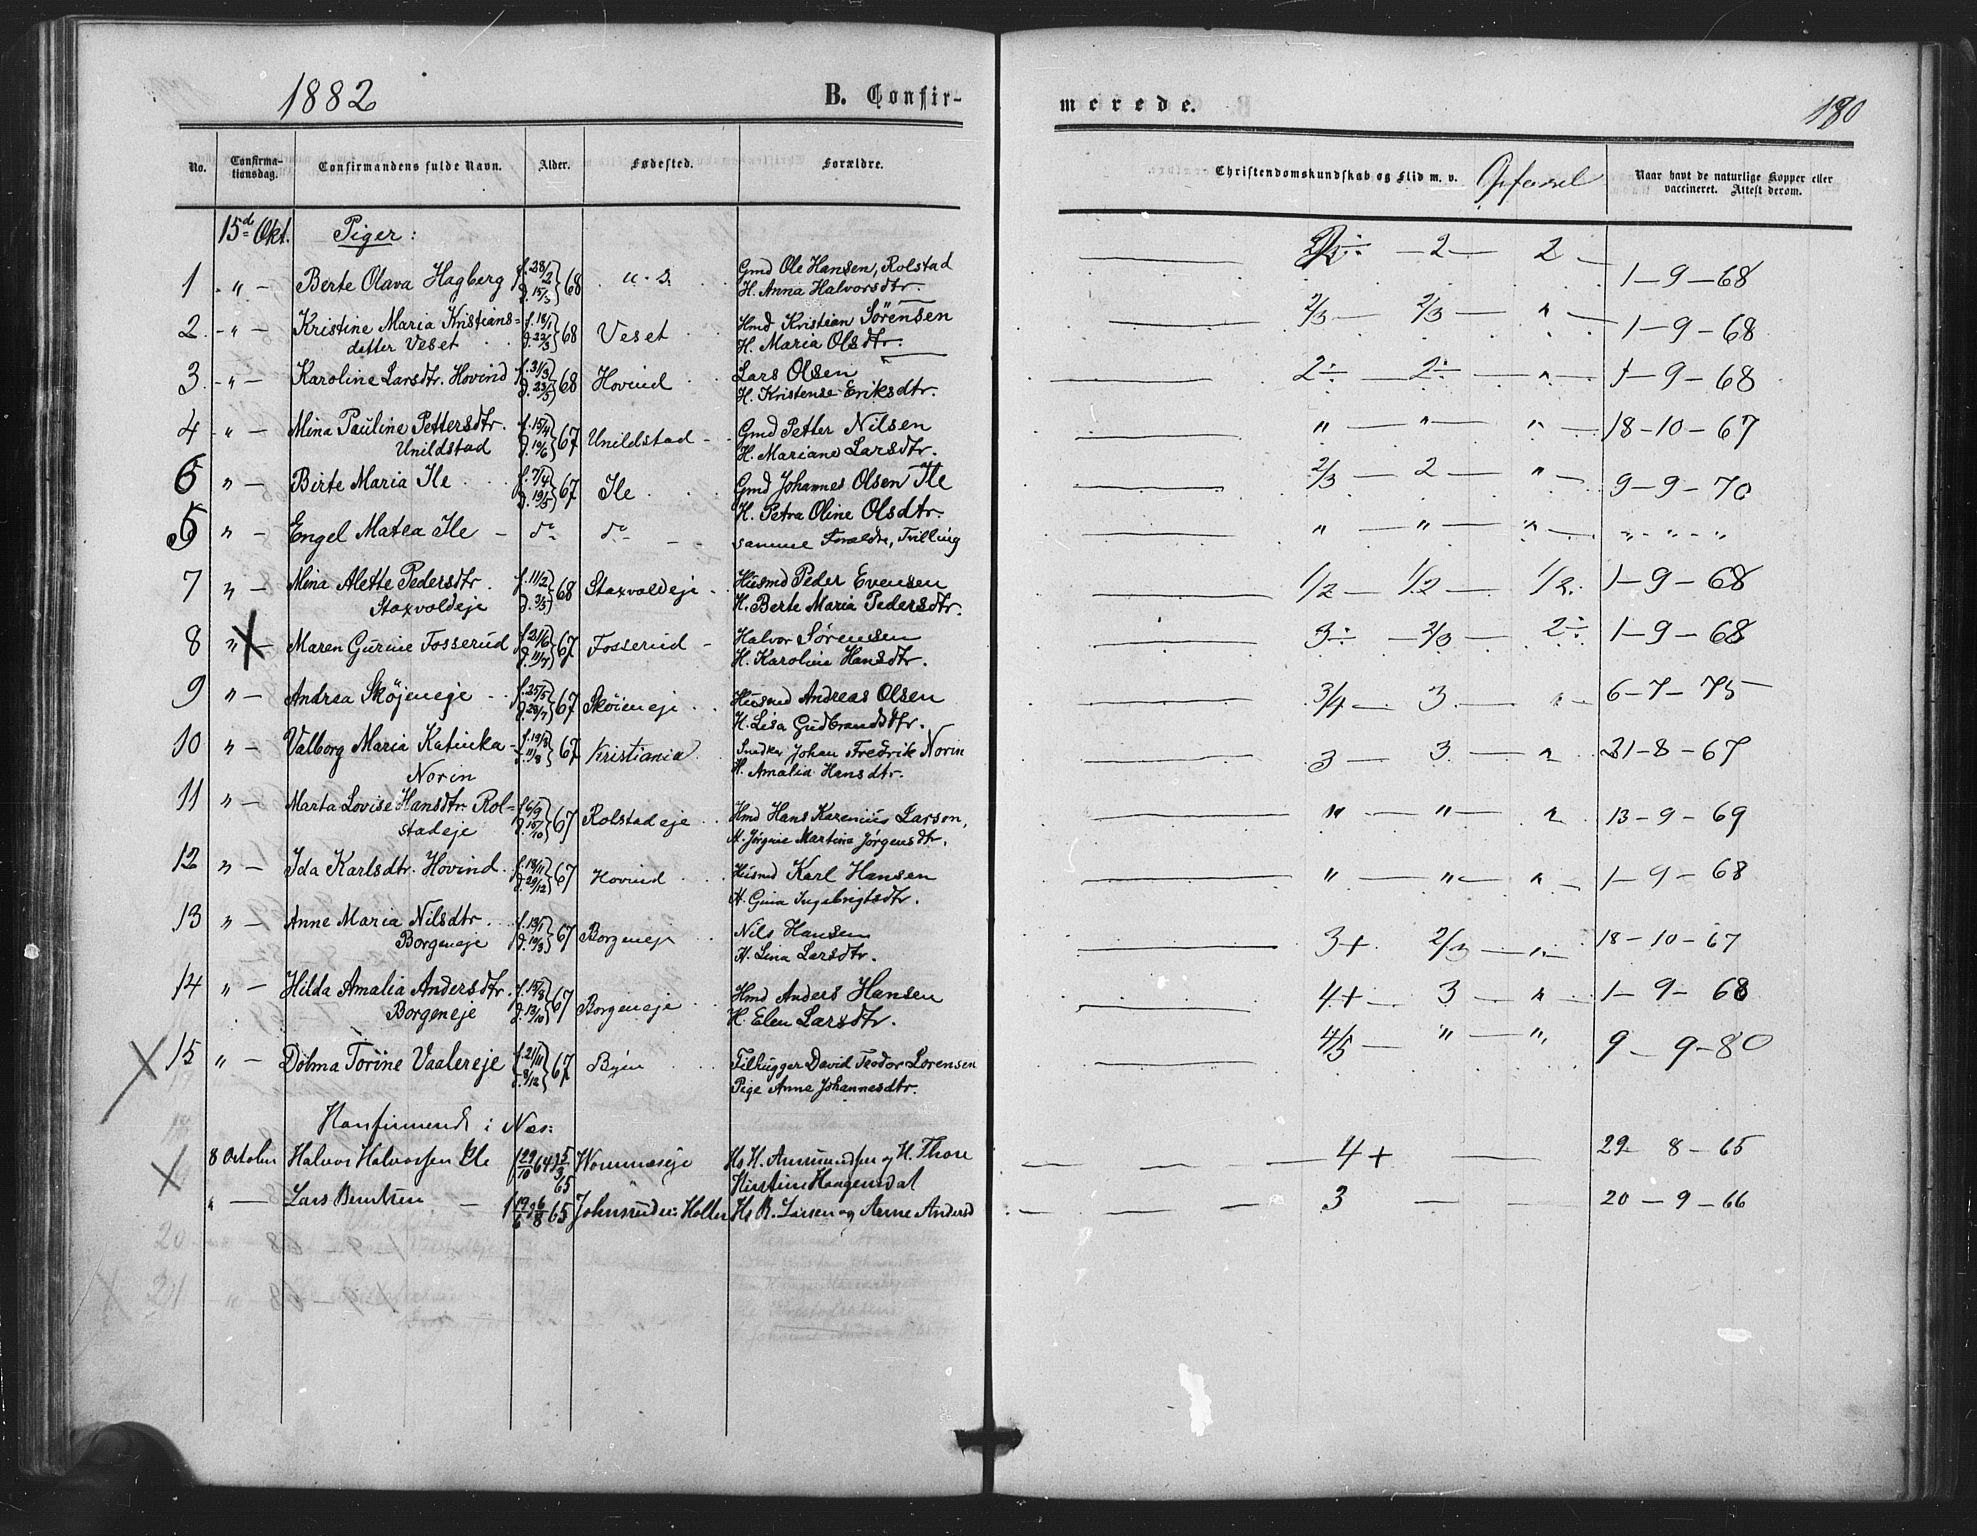 1882 B. Confir-
merede. 180
No. Confirma-tionsdag. Confirmandens fulde Navn. Alder. Fødested. Forældre.
Christendomskundskab og Flid m. v. Opførsel Naar havt de naturlige Kopper eller vaccineret. Attest derom.
15d Okt. Piger:
1 - " - Berte Olava Hagberg f. 28/2 d. 15/3 } 68 Gmd Ole Hansen, Rolstad — 2 — 2 — 1-9-68
H. Anna Halvorsdtr.
2. - " - Kristine Maria Kristians= f. 18/1 d. 22/3 } 68 Veset Hmd Kristian Sørensen 2/3 — 2/3 — " — 1-9-68
datter Veset H. Maria Olsdtr.
3. - " - Karoline Larsdtr. Hovind f. 31/3 d. 23/5 } 68 Hovind Lars Olsen 2÷ — 2÷ — " — 1-9-68
H. Kristense Eriksdtr.
4 - " - Mina Pauline Pettersdtr. f. 15/4 d. 19/6 } 67 Unildstad - Gmd Petter Nilsen " — " — " — 18-10-67
Unildstad H. Mariane Larsdtr.
6 " - Birte Maria Ile f. 7/4 d. 19/5 } 67 Ile Gmd Johannes Olsen Ile 2/3 — 2 — " — 9-9-70
H. Petra Oline Olsdtr.
5 " - Engel Matea Ile - do do samme Forældre, Tvilling " — " — " — " - " - " - "
7 " - Mina Alette Pedersdtr. f. 11/2 d. 3/5 } 68 Staxvoldeje - Husmd Peder Evensen 1/2 — 1/2 — 1/2. 1-9-68
Staxvoldeje H. Berte Maria Pedersdtr.
8 " X - Maren Gurine Fosserud f. 21/6 d. 11/7 } 67 Fosserud - Halvor Sørensen 3÷ — 2/3 — 2÷ 1-9-68
H. Karoline Hansdtr.
9 " - Andrea Skøjeneje f. 25/5 d. 28/7 } 67 Skøieneje Husmd Andreas Olsen 3/4 — 3 — " 6-7-75
H. Lisa Gudbrandsdtr.
10 " - Valborg Maria Katinka f. 19/3 d. 11/8 } 67 Kristiania Snedker Johan Fredrik Norin 3 — 3 — " 31-8-67
Norin H. Amalia Hansdtr.
11 " - Marta Lovise Hansdtr. Rol= f. 6/9 d. 15/10 } 67 Rolstadeje Hmd Hans Karenius Larson, " — " — " 13-9-69
stadeje H. Jørgine Martine Jørgensdtr.
12 " - Ida Karlsdtr. Hovind f. 18/11 d. 29/12 } 67 Hovind Husmd Karl Hansen " — " — " — 1-9-68
H. Gina Ingebrigtsdtr.
13 " - Anne Maria Nilsdtr. f. 13/1 d. 19/3 } 67 Borgeneje Nils Hansen 3+ 2/3 — " 18-10-67
Borgeneje H. Lina Larsdtr.
14 " - Hilda Amalia Andersdtr. f. 15/8 d. 13/10 } 67 Borgeneje Hmd Anders Hansen 4+ — 3 — " 1-9-68
Borgeneje H. Elen Larsdtr.
X 15 " - Dolma Torine Vaalereje f. 21/11 d. 8/12 } 67 Byen Filhugger David Teodor Lorensen 4/5 — " — " 9-9-80
Pige Anne Johannesdtr.
Konfirmerede i Næs:
X 8 October Halvor Halvorsen Ile f 29/10 64 d 5/3 65 Hommeseje Hs H. Amundsen og H. Thore 4+ — 29-8-65
Kirstine Haagensdat
" — Lars Berntsen — f 19/6 d 6/8 65 Johnsrudeie Holter Hs B. Larsen og Anne Andersd 3 — 20-9-66